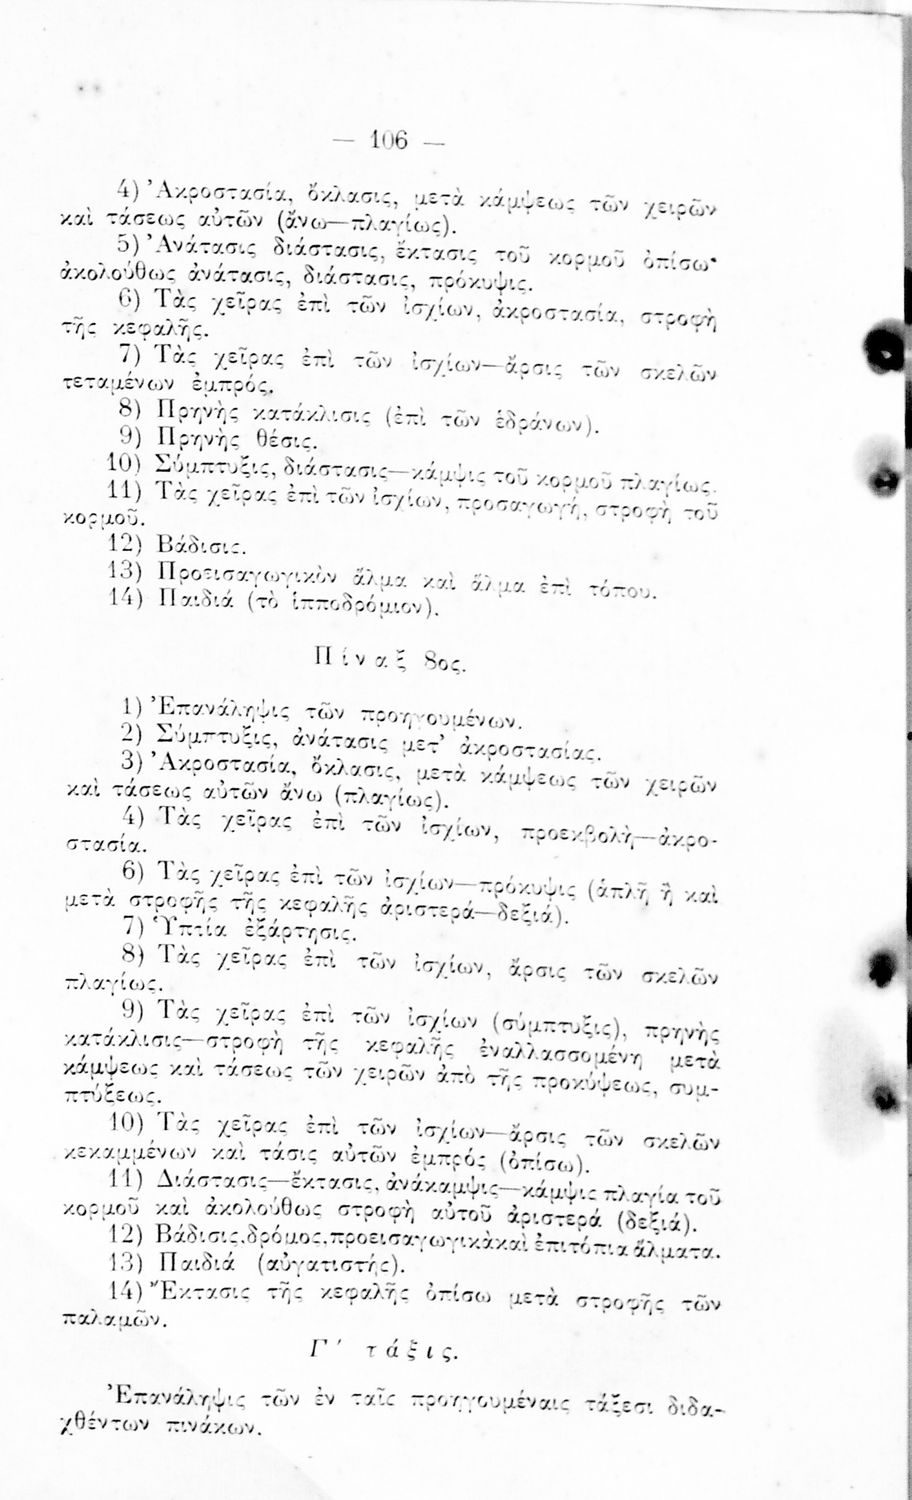 — 106 —
4) Ἀκροστασία, ὄκλασις, μετὰ κάμψεως τῶν χειρῶν
καὶ τάσεως αὐτῶν (ἄνω—πλαγίως).
5) Ἀνάτασις διάστασις, ἔκτασις τοῦ κορμοῦ ὀπίσω·
ἀκολούθως ἀνάτασις, διάστασις, πρόκυψις.
6) Τὰς χεῖρας ἐπὶ τῶν ἰσχίων, ἀκροστασία, στροφὴ
τῆς κεφαλῆς.
7) Τὰς χεῖρας ἐπὶ τῶν ἰσχίων—ἄρσις τῶν σκελῶν
τεταμένων ἐμπρός.
8) Πρηνὴς κατάκλισις (ἐπὶ τῶν ἑδράνων).
9) Πρηνὴς θέσις.
10) Σύμπτυξις, διάστασις—κάμψις τοῦ κορμοῦ πλαγίως.
11) Τὰς χεῖρας ἐπὶ τῶν ἰσχίων, προσαγωγή, στροφὴ τοῦ
κορμοῦ.
12) Βάδισις.
13) Προεισαγωγικὸν ἅλμα καὶ ἅλμα ἐπὶ τόπου.
14) Παιδιά (τὸ ἱπποδρόμιον).
Πίναξ 8ος.
1) Ἐπανάληψις τῶν προηγουμένων.
2) Σύμπτυξις, ἀνάτασις μετ' ἀκροστασίας.
3) Ἀκροστασία, ὄκλασις, μετὰ κάμψεως τῶν χειρῶν
καὶ τάσεως αὐτῶν ἄνω (πλαγίως).
4) Τὰς χεῖρας ἐπὶ τῶν ἰσχίων, προεκβολὴ—ἀκρο-
στασία.
6) Τὰς χεῖρας ἐπὶ τῶν ἰσχίων—πρόκυψις (ἁπλῆ ἢ καὶ
μετὰ στροφῆς τῆς κεφαλῆς ἀριστερά—δεξιά).
7) Ὑπτία ἐξάρτησις.
8) Τὰς χεῖρας ἐπὶ τῶν ἰσχίων, ἄρσις τῶν σκελῶν
πλαγίως.
9) Τὰς χεῖρας ἐπὶ τῶν ἰσχίων (σύμπτυξις), πρηνὴς
κατάκλισις—στροφὴ τῆς κεφαλῆς ἐναλλασσομένη μετὰ
κάμψεως καὶ τάσεως τῶν χειρῶν ἀπὸ τῆς προκύψεως, συμ-
πτύξεως.
10) Τὰς χεῖρας ἐπὶ τῶν ἰσχίων—ἄρσις τῶν σκελῶν
κεκαμμένων καὶ τάσις αὐτῶν ἐμπρός (ὀπίσω).
11) Διάστασις—ἔκτασις, ἀνάκαμψις—κάμψις πλαγία τοῦ
κορμοῦ καὶ ἀκολούθως στροφὴ αὐτοῦ ἀριστερά (δεξιά).
12) Βάδισις, δρόμος, προεισαγωγικὰ καὶ ἐπιτόπια ἅλματα.
13) Παιδιά (αὐγατιστής).
14) Ἔκτασις τῆς κεφαλῆς ὀπίσω μετὰ στροφῆς τῶν
παλαμῶν.
Γ' τάξις.
Ἐπανάληψις τῶν ἐν ταῖς προηγουμέναις τάξεσι διδα-
χθέντων πινάκων.